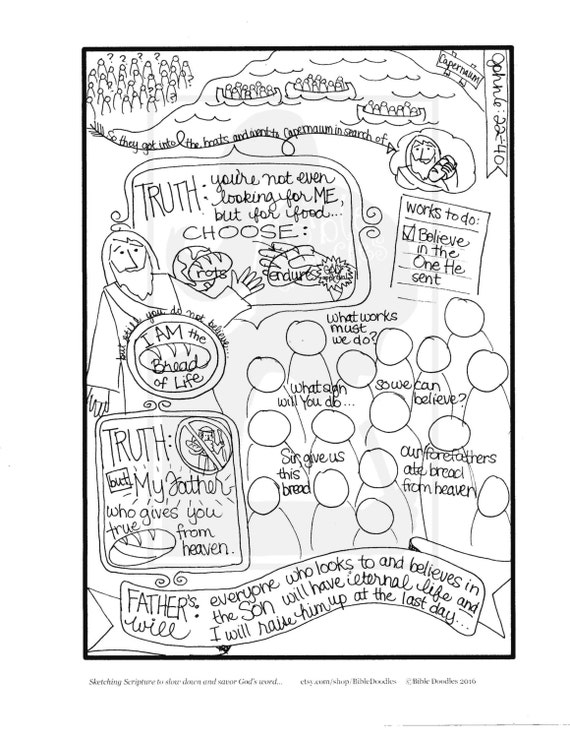 John 6:22-40
Capernaum
So they got into the boats and went to Capernaum in search of
TRUTH: you're not even
looking for ME,
but for food...
CHOOSE:
rots
endures
works to do:
Believe
in the
One He
sent
but still you do not believe...
I AM the
Bread
of Life
what works
must
we do?
what sign
will you do...
so we can
believe?
Sir, give us
this
bread
our forefathers
ate bread
from heaven
TRUTH:
but My Father
who gives you
true
from
heaven.
FATHER's
will:
everyone who looks to and believes in
the SON will have eternal life and
I will raise him up at the last day...
Sketching Scripture to slow down and savor God's word... etsy.com/shop/BibleDoodles ©Bible Doodles 2016